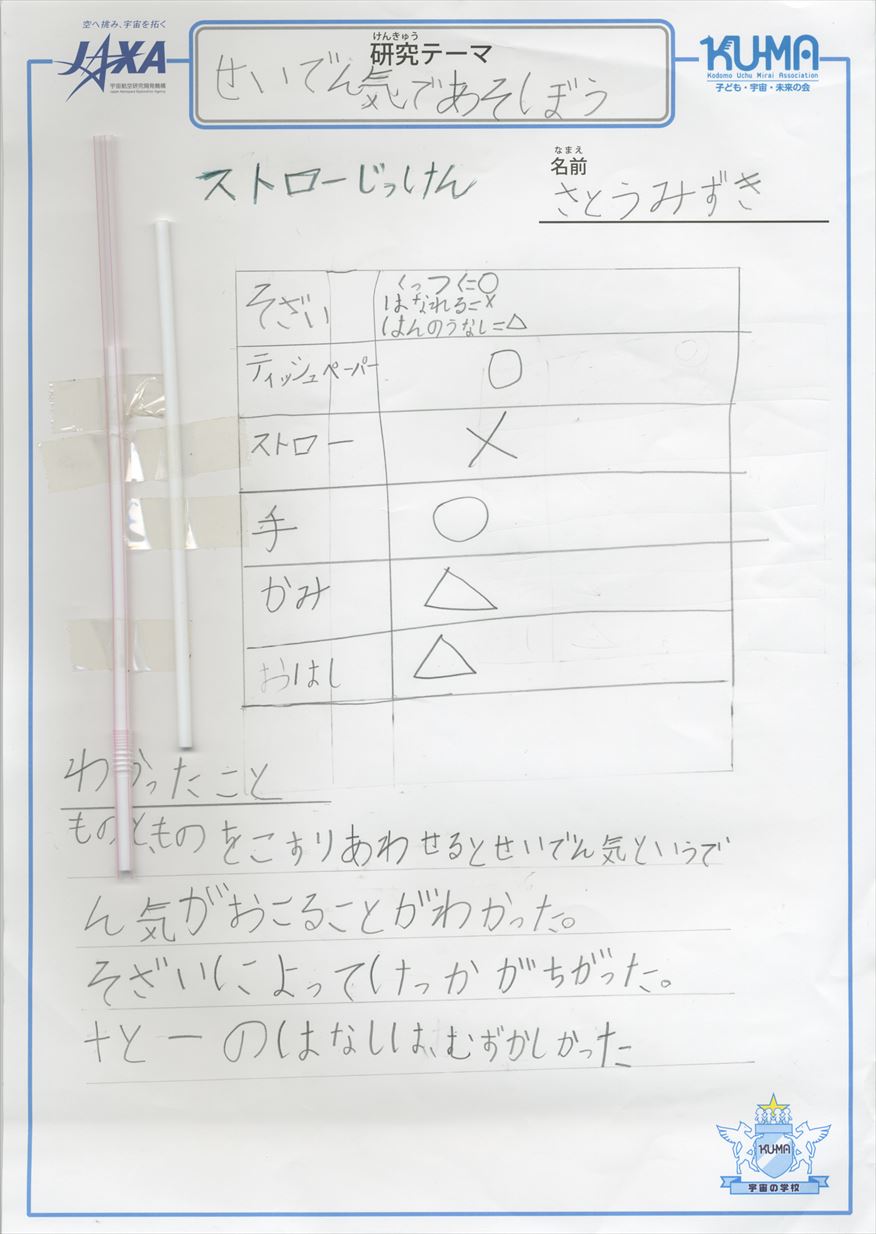 空へ挑み、宇宙を拓く
JAXA
宇宙航空研究開発機構
Japan Aerospace Exploration Agency
けんきゅう
研究テーマ
せいでん気であそぼう
KU-MA
Kodomo Uchu Mirai Association
子ども・宇宙・未来の会
ストローじっけん
なまえ
名前
さとうみずき
そざい
くっつく=○
はなれる=×
はんのうなし=△
ティッシュペーパー ○
ストロー ×
手 ○
かみ △
おはし △
わかったこと
ものとものをこすりあわせるとせいでん気というで
ん気がおこることがわかった。
そざいによってけっかがちがった。
+と−のはなしは、むずかしかった
KU-MA
宇宙の学校